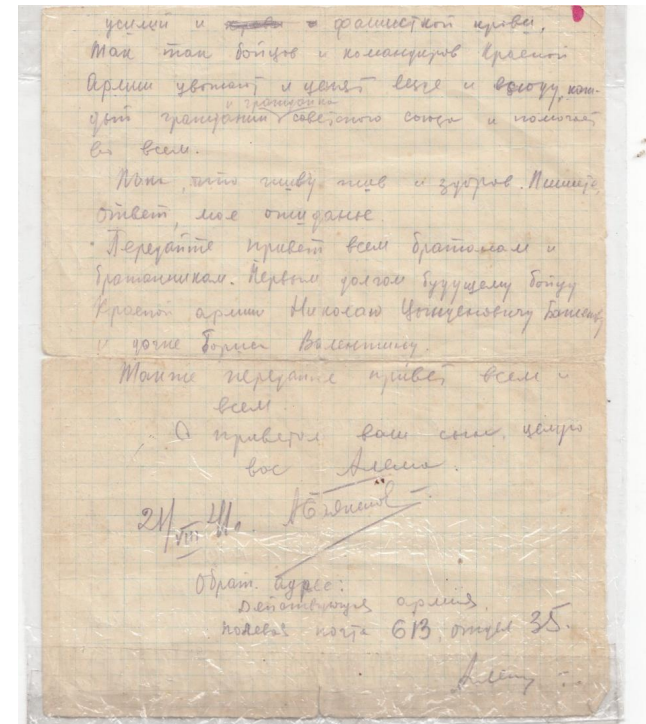 усилий и фашисткой крови.
Так там бойцов и командиров Красной
Армии уважают и ценят везде и всюду, каж-
и гражданка
дый гражданин советского союза и помогает
во всем.
Пока, что живу жив и здоров. Пишите
ответ, мое ожидание.
Передайте привет всем братанам и
братанникам. Первым долгом будущему бойцу
Красной армии Николаю Цынденовичу
и дочке Бориса Валентину.
Также передайте привет всем и
всем.
С приветом ваш сын, целую
вас
21/VIII 41 г.
Обрат. адрес:
Действующая армия,
полевая почта 613, отдел 35.